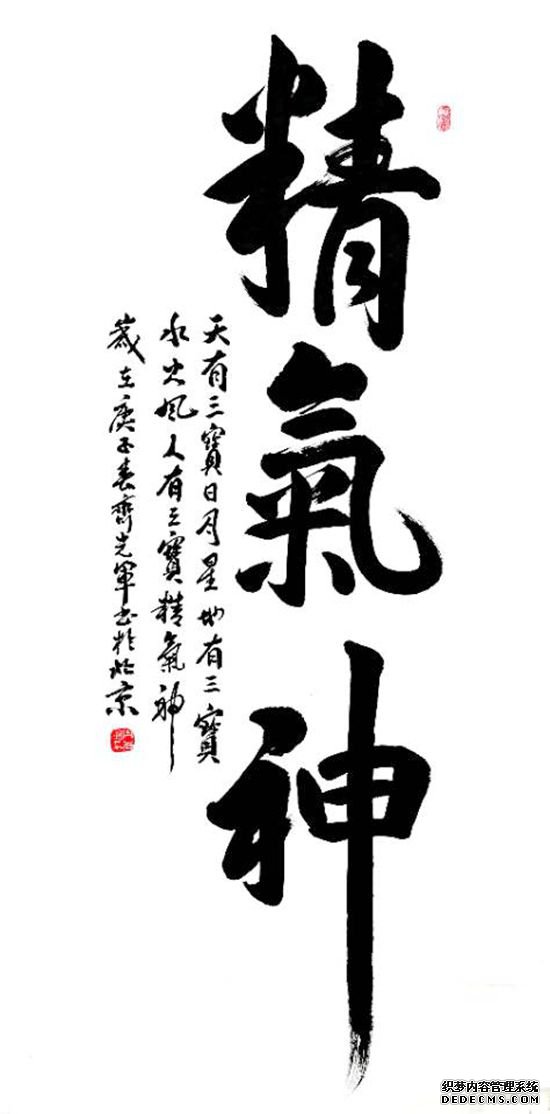 精氣神
天有三寶日月星地有三寶
水火風人有三寶精氣神
歲在庚子春齊光軍書於北京
织梦内容管理系统
DEDECMS.COM